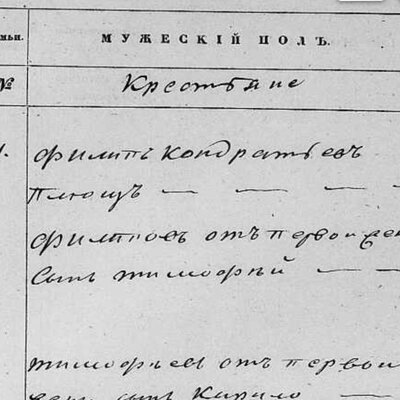 мьи.
МУЖЕСКІЙ ПОЛЪ.
№
Крестьяне
1.
Филипъ Кондратьевъ
Плющъ — — — —
Филиповъ отъ первой жен
сынъ Тимофѣй — —
Тимофѣевъ отъ первой
жены сынъ Кирило —